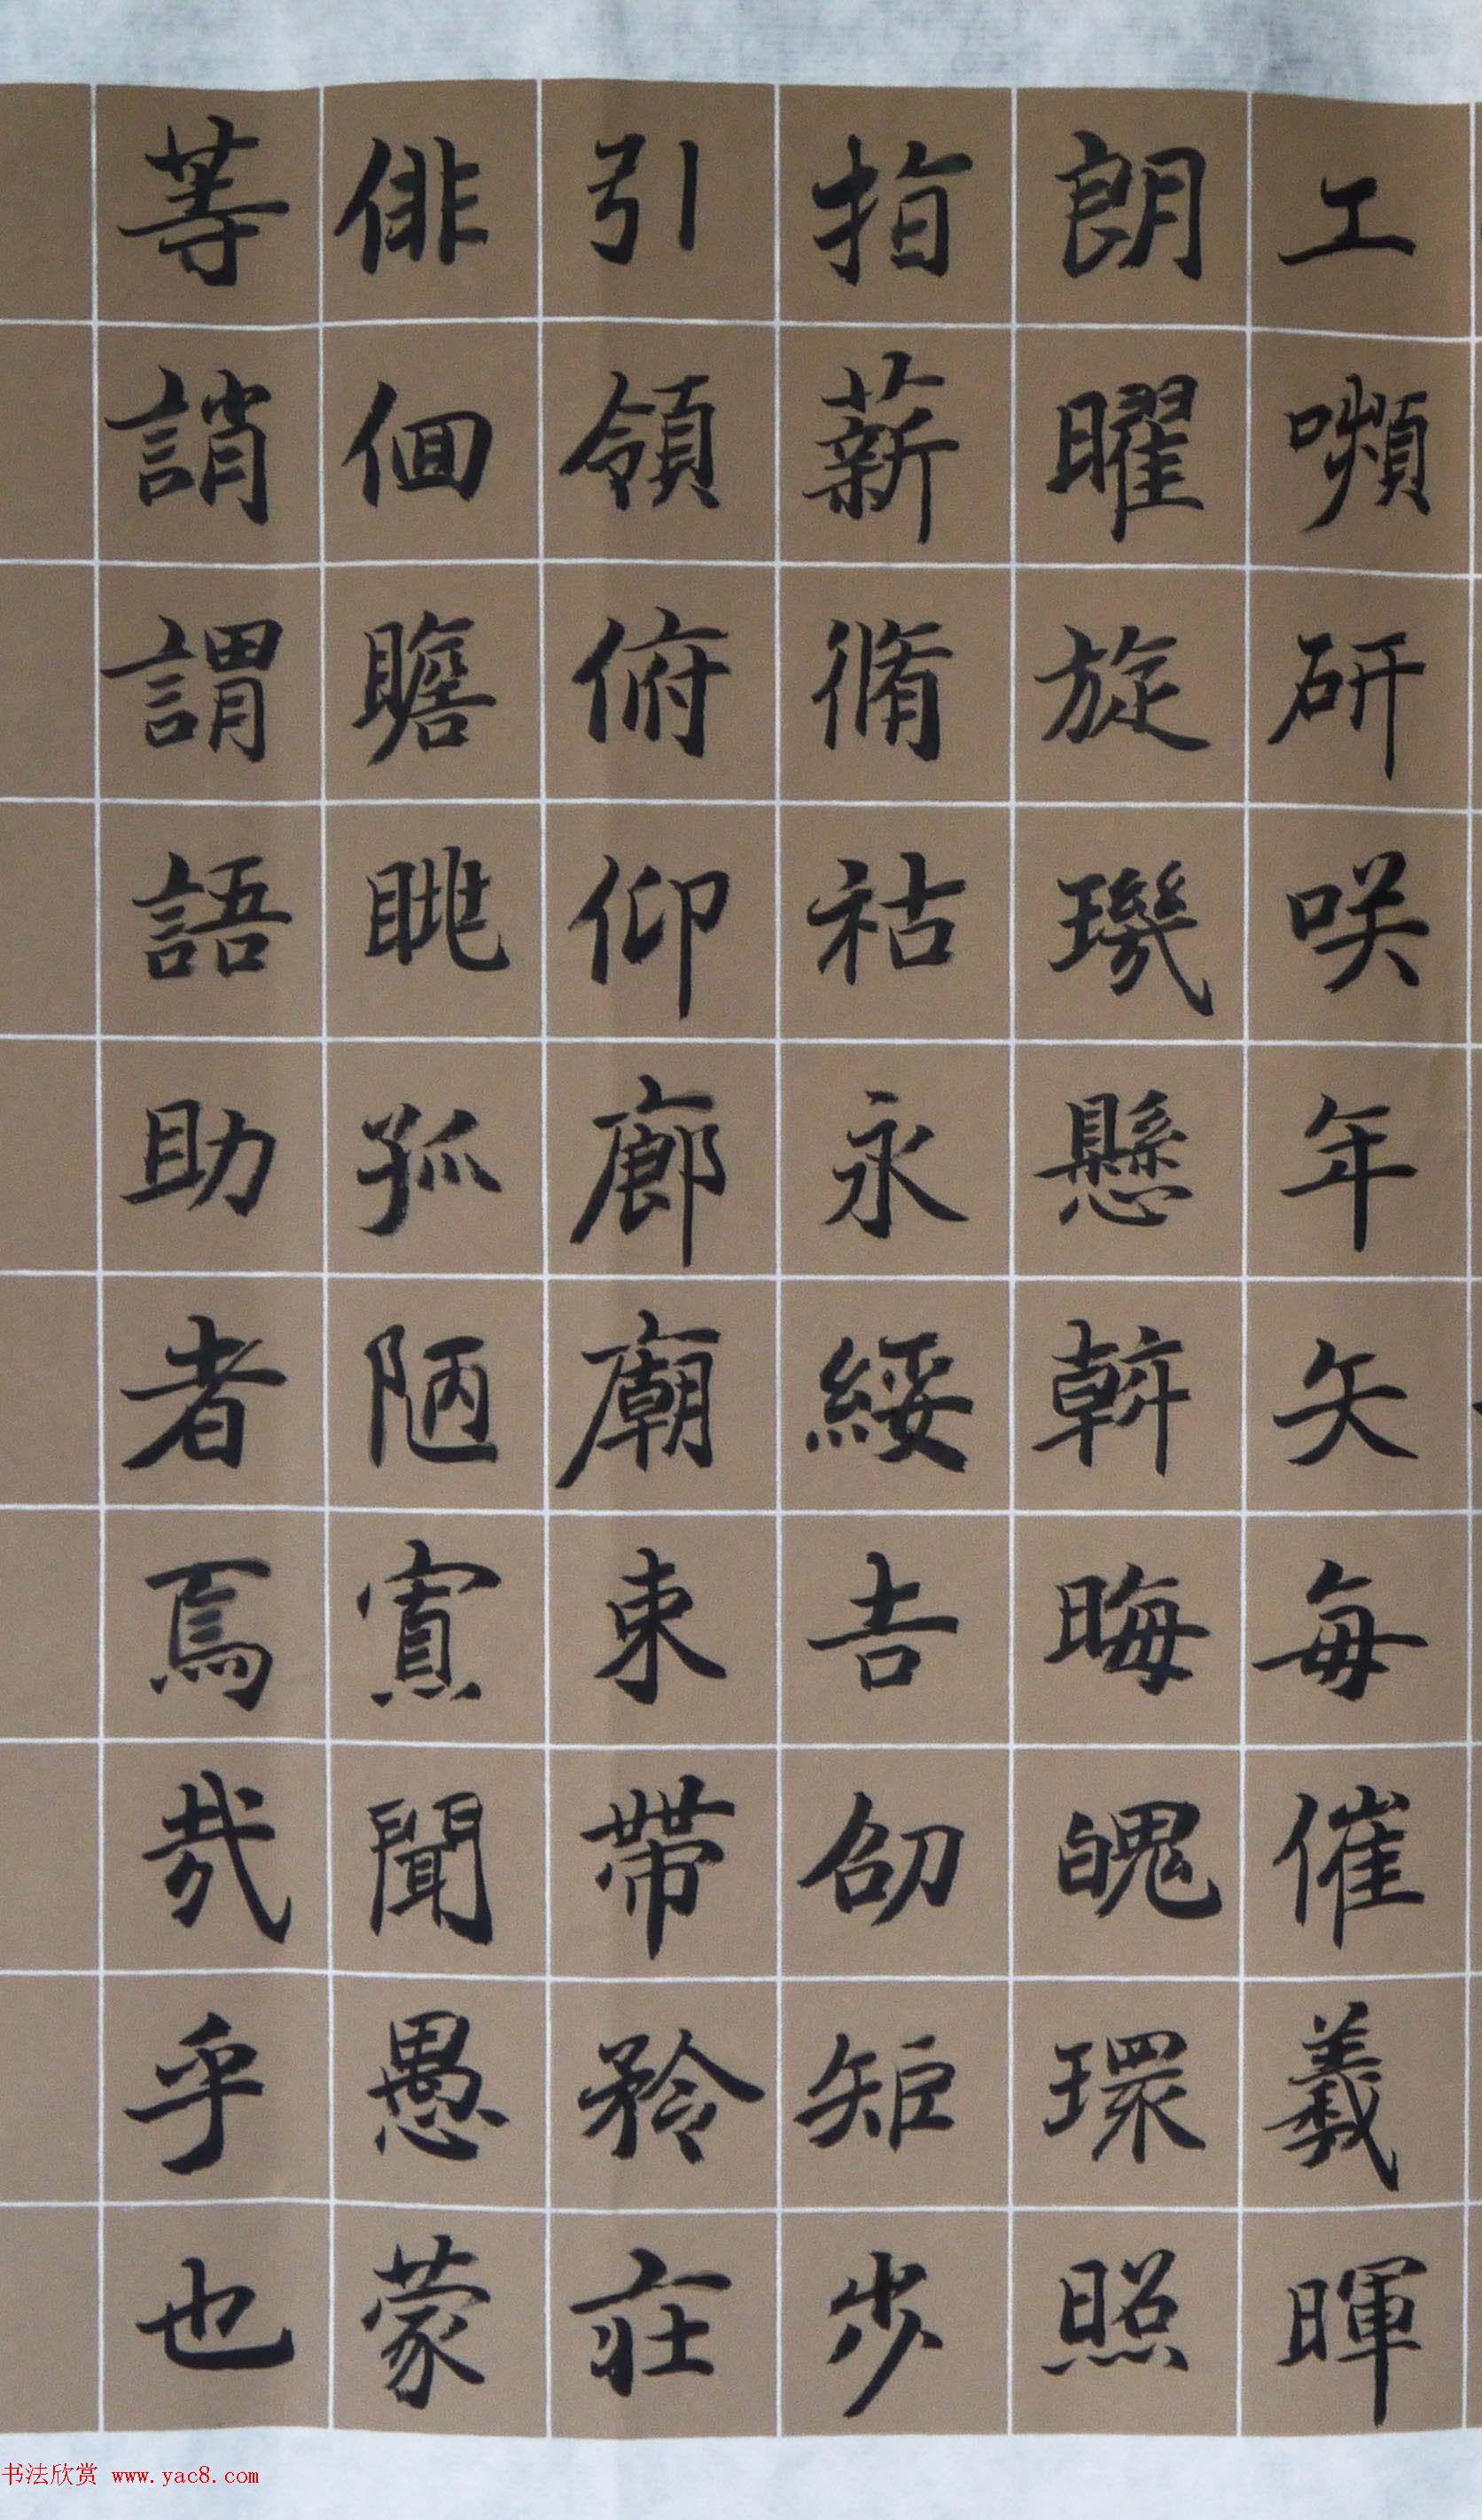 工嚬研咲年矢每催羲暉
朗曜旋璣懸斡晦魄環照
指薪脩祜永綏吉劭矩步
引領俯仰廊廟束帶矜莊
俳佪瞻眺孤陋寡聞愚蒙
等誚謂語助者焉哉乎也
书法欣赏 www.yac8.com